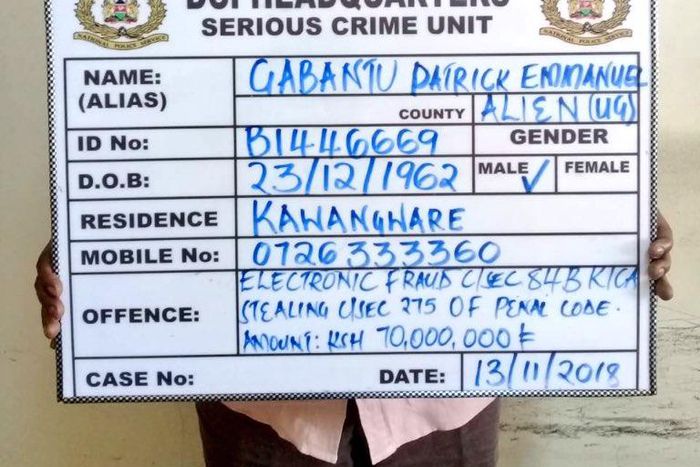 DCI HEADQUARTERS
SERIOUS CRIME UNIT
NATIONAL POLICE SERVICE
NATIONAL POLICE SERVICE
NAME: GABANTU PATRICK EMMANUEL
(ALIAS)
COUNTY ALIEN (UG)
ID No: B1446669
GENDER
D.O.B: 23/12/1962
MALE ✓ FEMALE
RESIDENCE KAWANGWARE
MOBILE No: 0726333360
OFFENCE: ELECTRONIC FRAUD C/SEC 84B KICA
STEALING C/SEC 275 OF PENAL CODE.
AMOUNT: KSH 70,000,000/=
CASE No:
DATE: 13/11/2018